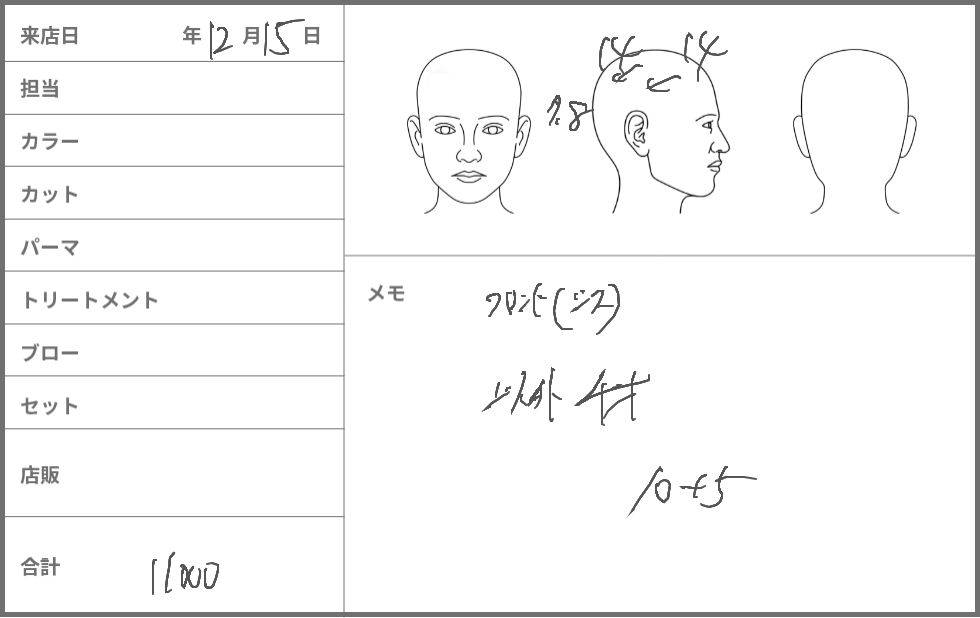 来店日 年 12 月 15 日
担当
カラー
カット
パーマ
トリートメント
ブロー
セット
店販
合計 11000
14 14
メモ
フロント
以外
10+5